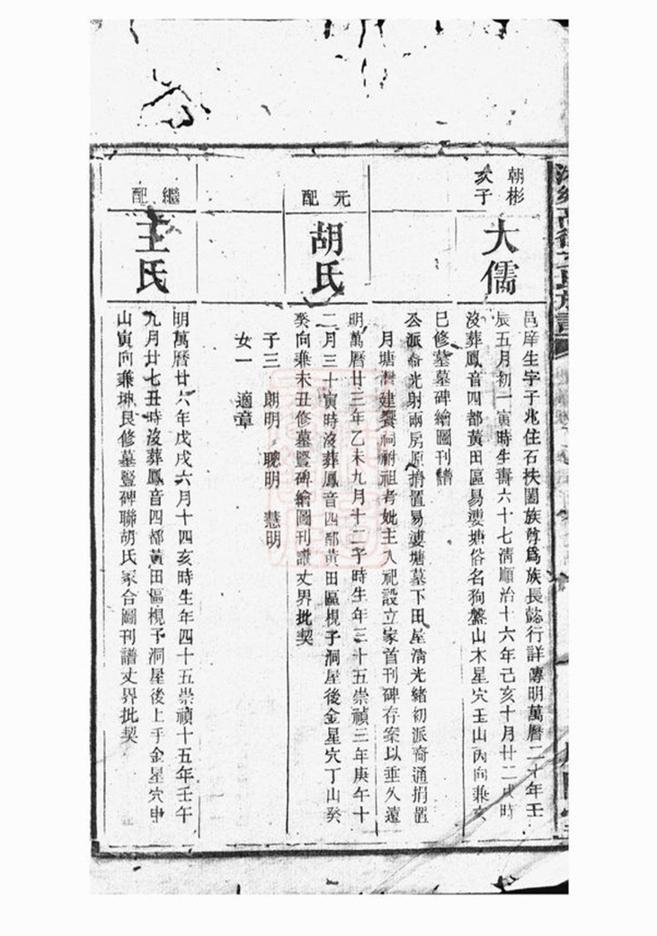 朝彬
亥子
大儒
邑庠生字子兆住石扶闔族尊爲族長懿行詳傳明萬曆二十年壬
辰五月初一寅時生壽六十七清順治十六年己亥十月廿二戌時
沒葬鳳音四都黃田區易婆塘俗名狗盤山木星穴壬山丙向兼亥
巳修墓墓碑繪圖刊譜
公派命光射兩房原捐置易婆塘墓下田屋清光緒初派裔通捐置
月塘建饗祠祔祖考妣主入祀設立家首刊碑存案以垂久遠
元配
胡氏
明萬曆廿三年乙未九月十二子時生年三十五崇禎三年庚午十
二月三十寅時沒葬鳳音四都黃田區梘子洞屋後金星穴丁山癸
癸向兼未丑修墓豎碑繪圖刊譜丈界批契
子三 朗明 聰明 慧明
女一 適章
繼配
王氏
明萬曆廿六年戊戌六月十四亥時生年四十五崇禎十五年壬午
九月廿七丑時沒葬鳳音四都黃田區梘子洞屋後上手金星穴申
山寅向兼坤艮修墓豎碑聯胡氏冢合圖刊譜丈界批契